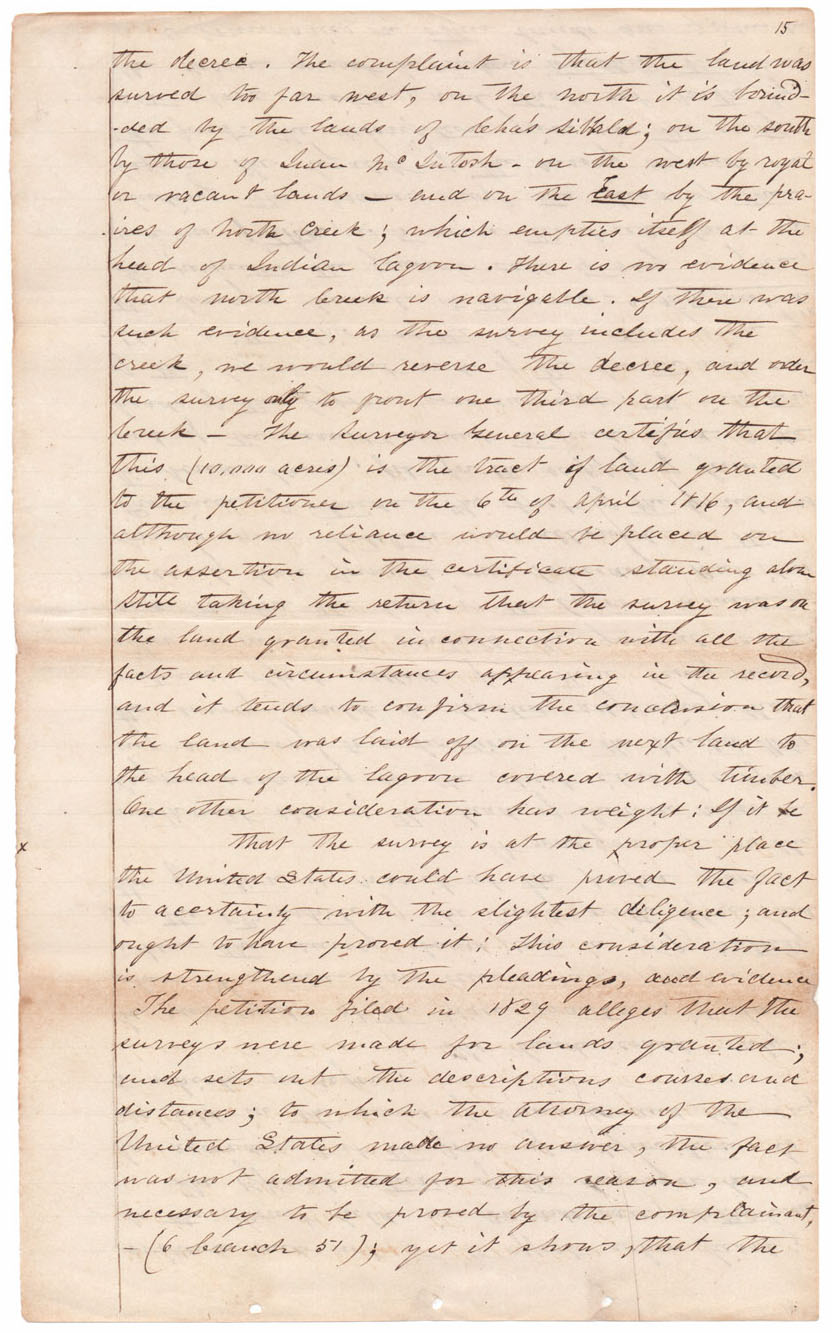 15
the decree. The complaint is that the land was
surved too far west, on the north it is bound-
-ded by the lands of Cha's Sibbald; on the south
by those of Juan Mc Intosh - on the west by royal
or vacant lands - and on the East by the pra-
ires of North Creek; which empties itself at the
head of Indian lagoon. There is no evidence
that north Creek is navigable. If there was
such evidence, as the survey includes the
creek, we would reverse the decree, and order
the survey only to front one third part on the
Creek - The Surveyor General certifies that
this (10,000 acres) is the tract of land granted
to the petitioner on the 6th of April 1816, and
although no reliance would be placed on
the assertion in the certificate standing alone
still taking the return that the survey was on
the land granted in connection with all the
facts and circumstances appearing in the record,
and it tends to confirm the conclusion that
the land was laid off on the next land to
the head of the lagoon covered with timber.
One other consideration has weight: If it be
x that the survey is at the proper place
the United States could have proved the fact
to acertainty with the slightest diligence; and
ought to have proved it: This consideration
is strengthend by the pleadings, and evidence
The petition filed in 1829 alleges that the
surveys were made for lands granted;
and sets out the descriptions courses and
distances; to which the attorney of the
United States made no answer, the fact
was not admitted for this reason, and
necessary to be proved by the complainant,
- (6 Cranch 51); yet it shows, that the